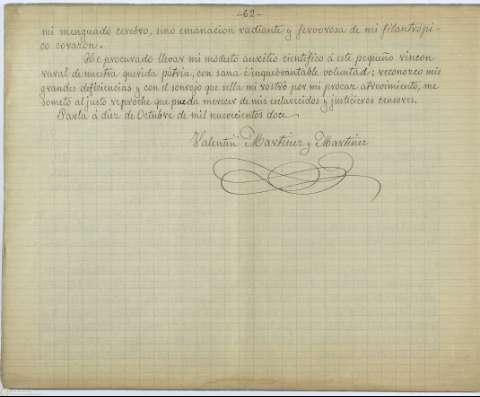 -62-
mi menguado cerebro, sino emanacion radiante y fervorosa de mi filantrópi-
co corazón.
He procurado llevar mi modesto auxilio científico á este pequeño rincon
rural de nuestra querida patria, con sana é inquebrantable voluntad; reconozco mis
grandes deficiencias y con el sonrojo que sella mi rostro por mi procaz atrevimiento, me
someto al justo reproche que pueda merecer de mis esclarecidos y justicieros censores.
Parla á diez de Octubre de mil novecientos doce.
Valentín Martínez y Martínez